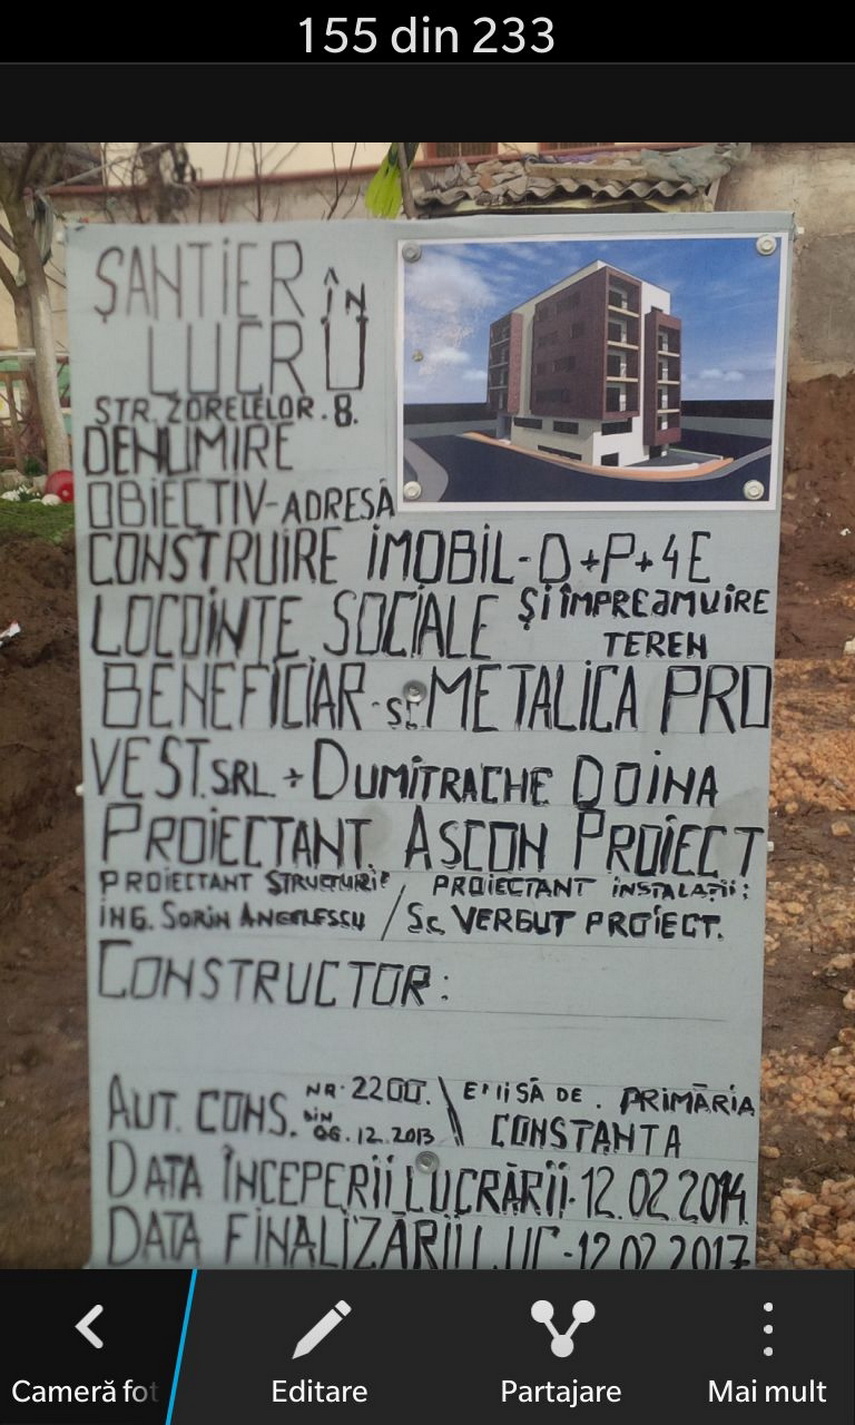 155 din 233
ŞANTiER ÎN
LUCRU
STR. ZORELELOR. 8.
DENUMIRE
OBiECTIV-ADRESĂ
CONSTRUiRE iMOBiL-D+P+4E
LOCUINŢE SOCiALE ŞI ÎMPREJMUIRE
TEREN
BENEFICIAR - SC METALICA PRO
VEST.SRL + DUMiTRACHE DOINA
PROiECTANT. ASCON PROiECT
PROIECTANT STRUCTURIE / PROIECTANT INSTALAŢII:
ING. SORiN ANGELESCU / SC VERGUT PROIECT.
CONSTRUCTOR:
AUT. CONS. NR. 2200. \ EMISĂ DE . PRiMĂRiA
DIN 06.12.2013 \\ CONSTANTA
DATA ÎNCEPERII LUCRĂRII. 12.02.2014
DATA FINALIZĂRII LUC - 12.02.2017
Cameră fot
Editare
Partajare
Mai mult